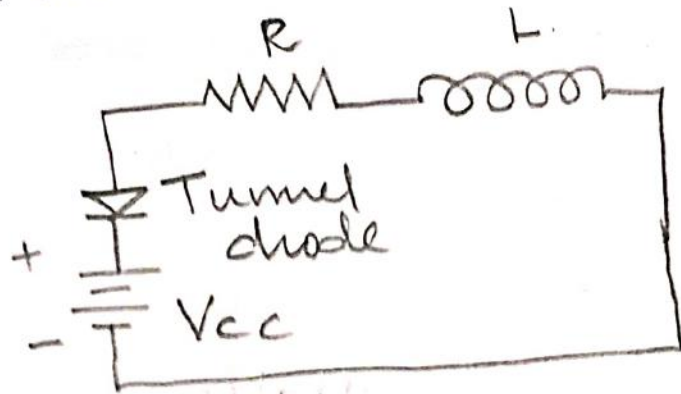 R
L.
Tunnel
diode
+
Vcc
-